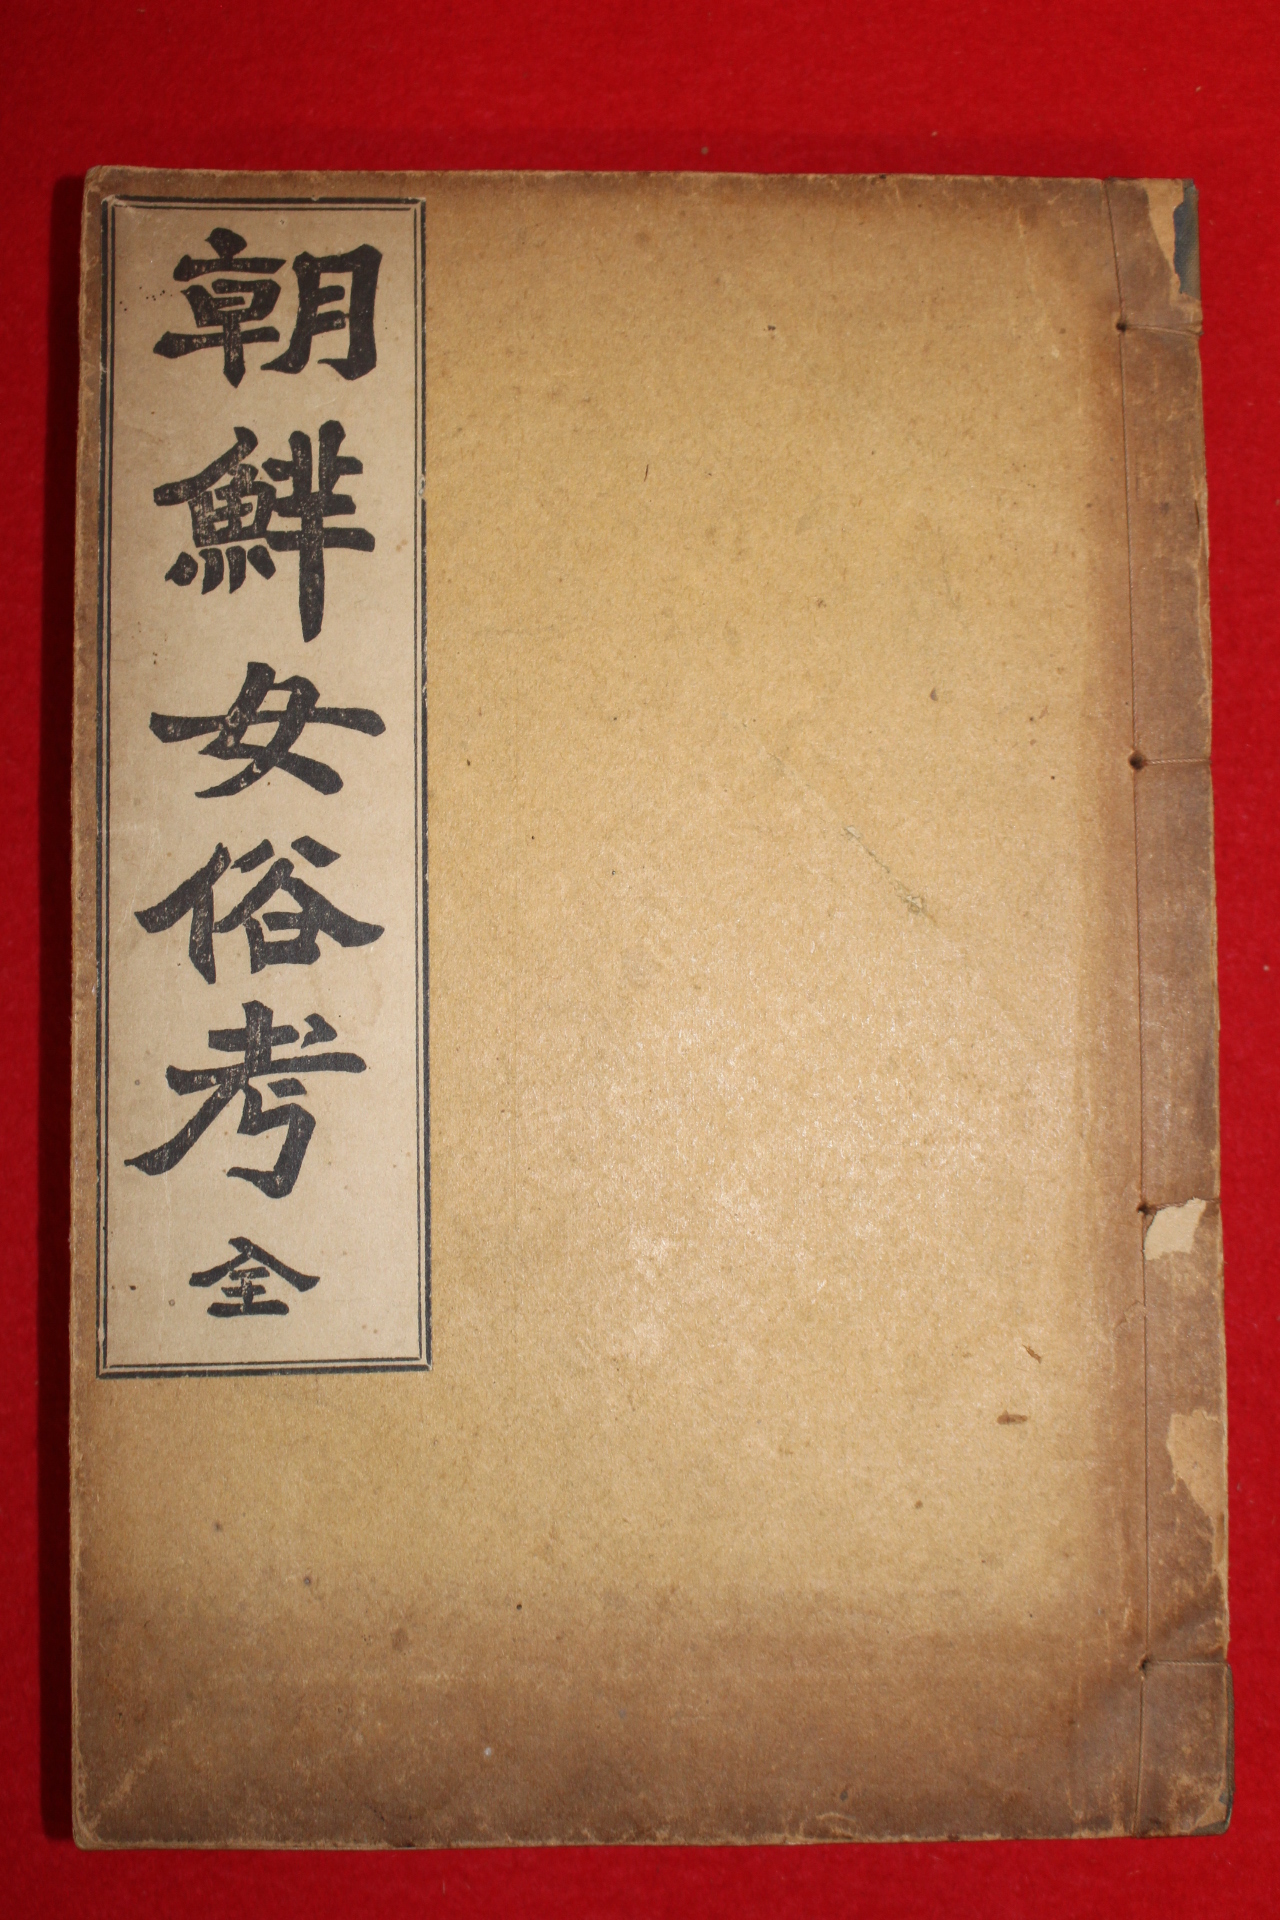 朝鮮女俗考 全